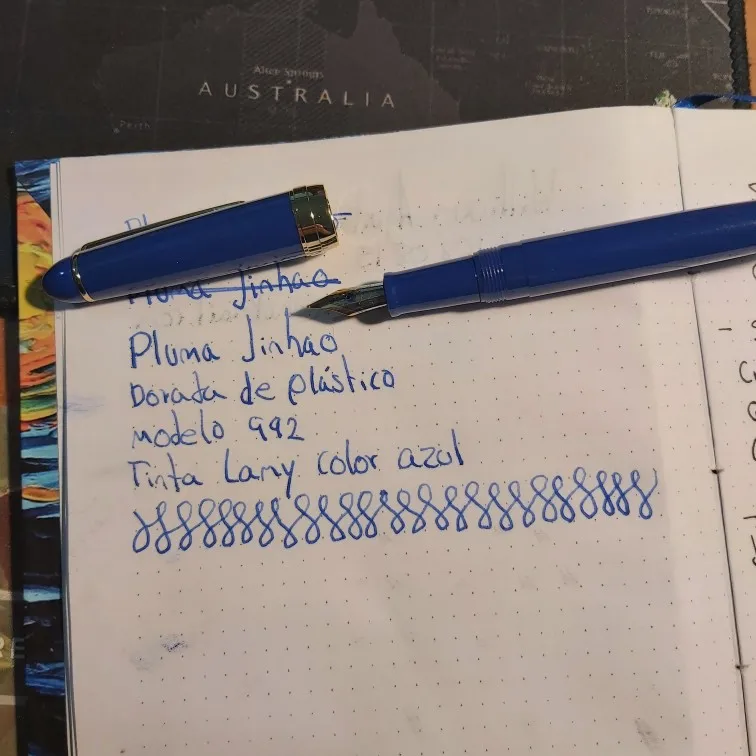 Alice Springs
AUSTRALIA
Perth
Pluma Jinhao
Pluma Jinhao
Dorada de plástico
modelo 992
Tinta Lamy color azul